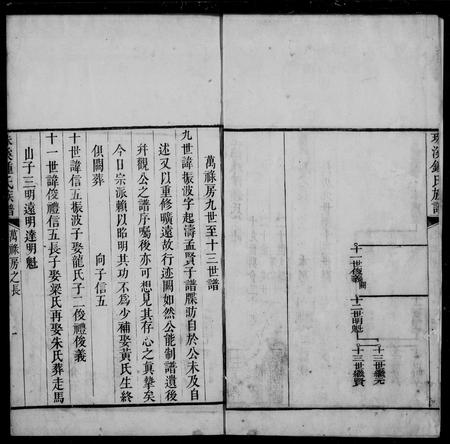 珠溪鍾氏族譜
十一世俊義
闕
十二世明魁
十三世繼元
十三世繼賢
萬祿房九世至十三世譜
九世諱振波字起濤孟賢子譜牒昉自於公未及自
述又以重修曠遠故行迹闕如然公能制譜遺後
并觀公之譜序囑後亦可想見其存心之真摯矣
今日宗派賴以昭明其功不為少補娶黃氏生終
俱闕葬 向子信五
十世諱信五振波子娶龍氏子二俊禮俊義
十一世諱俊禮信五長子娶梁氏再娶朱氏葬走馬
山子三明遠明達明魁
珠溪鍾氏族譜 萬祿房之長